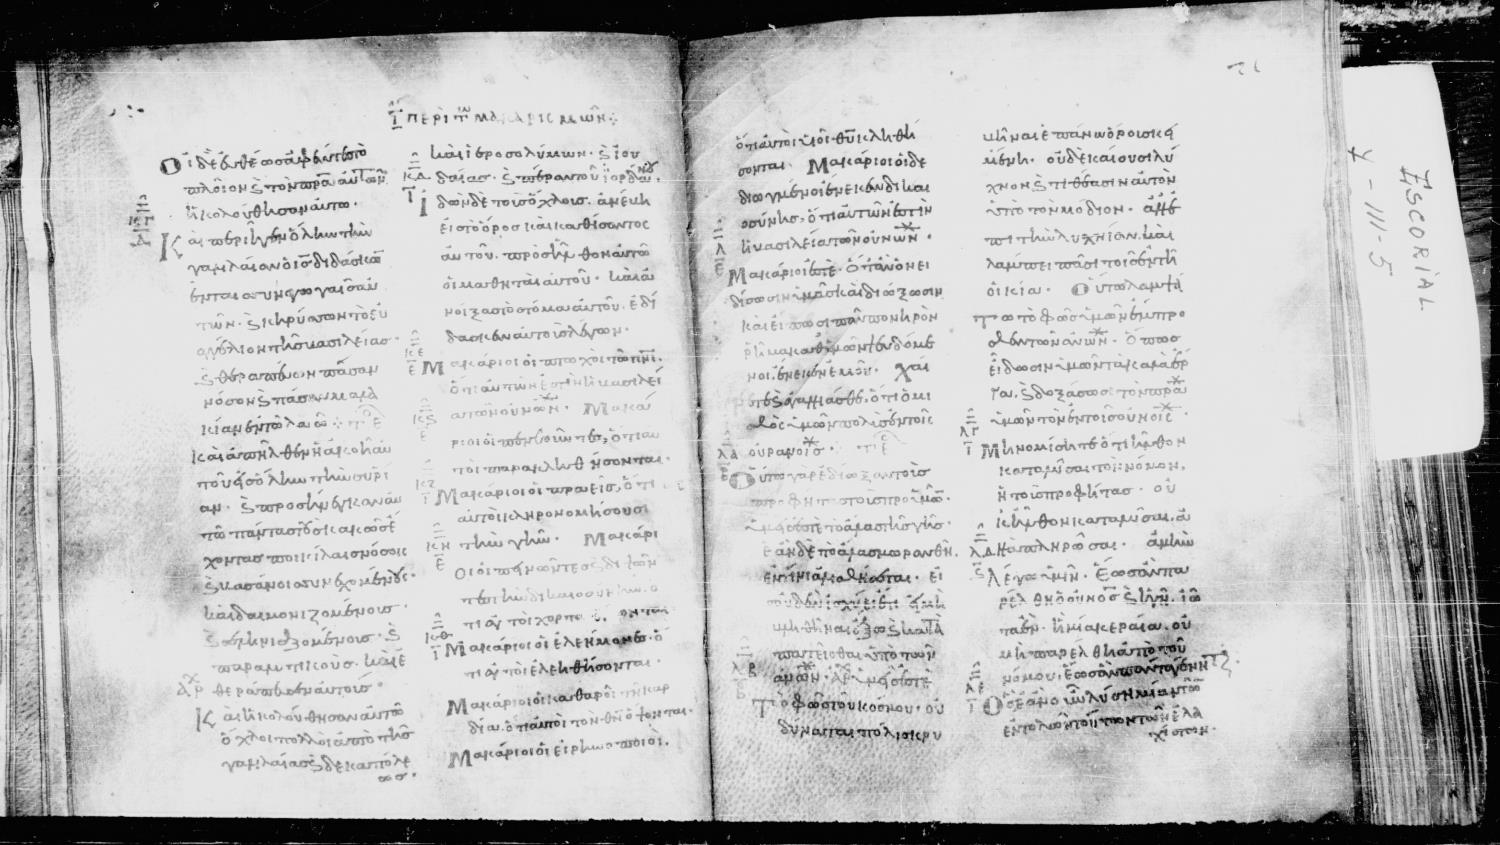 Ϊ ΠΕΡΙ ΤῶΝ ΜΑΚΑΡΙΣΜῶΝ
Οἱ δὲ εὐθέως ἀφέντες τὸ
πλοῖον ϗ τὸν πρα αὐτῶν
ἠκολούθησαν αὐτῶ·
Καὶ περιῆγεν ὅλην τὴν
γαλιλαίαν ὁ ις διδάσκων
ἐν ταις συναγωγαῖς αὐ
τῶν· ϗ κηρύσσων τὸ εὐ
αγγέλιον τῆς βασιλείας·
ϗ θεραπεύων πᾶσαν
νόσον ϗ πᾶσαν μαλα
κίαν ἐν τῶ λαῶ
Καὶ ἀπῆλθεν ἡ ἀκοὴ αὐ
τοῦ εἰς ὅλην τὴν συρί
αν· ϗ προσήνεγκαν αὐ
τῶ πάντας τοὺς κακῶς ἔ
χοντας ποικίλαις νόσοις
ϗ βασάνοις συνεχομένους·
καὶ δαιμονιζομένους·
ϗ σεληνιαζομένους· ϗ
παραλυτικούς· καὶ ἐ
θεράπευσεν αὐτούς·
Καὶ ἠκολούθησαν αὐτῶ
ὄχλοι πολλοὶ ἀπὸ τῆς
γαλιλαίας ϗ δεκαπόλε
ως·
καὶ ἱεροσολύμων· ϗ ἰου
δαίας· ϗ πέραν τοῦ ἰορδάνου·
Ἰδὼν δὲ τοὺς ὄχλους· ἀνέβη
εἰς τὸ ὄρος καὶ καθίσαντος
αὐτοῦ· προσῆλθον αὐτῶ
οἱ μαθηταὶ αὐτοῦ· καὶ ἀ
νοίξας τὸ στόμα αὐτοῦ· ἐδί
δασκεν αὐτοὺς λέγων·
Μακάριοι οἱ πτωχοὶ τῶ πνι·
ὅτι αὐτῶν ἐστὶν ἡ βασιλεί
α τῶν οὐνῶν· Μακά
ριοι οἱ πενθοῦντες, ὅτι αυ
τοὶ παρακληθήσονται·
Μακάριοι οἱ πραεῖς, ὅτι
αὐτοὶ κληρονομήσουσι
τὴν γῆν· Μακάρι
οι οἱ πεινῶντες ϗ διψῶν
τες τὴν δικαιοσύνην· ὅ
τι αὐτοὶ χορτασθήσονται·
Μακάριοι οἱ ἐλεήμονες· ὅ
τι αὐτοὶ ἐλεηθήσονται·
Μακάριοι οἱ καθαροὶ τῆ καρ
δία· ὅτι αὐτοὶ τὸν θν ὄψονται·
Μακάριοι οἱ εἰρηνοποιοὶ·
ὅτι αὐτοὶ υἱοὶ θυ κληθή
σονται· Μακάριοι οἱ δε
διωγμένοι ἕνεκεν δικαι
οσύνης, ὅτι αὐτῶν ἐστὶν
ἡ βασιλεία τῶν οὐνῶν·
Μακάριοι ἐστὲ· ὅταν ὀνει
δίσωσιν ὑμᾶς καὶ διώξωσιν
καὶ εἴπωσι πᾶν πονηρὸν
ῥῆμα καθ' ὑμῶν ψευδόμε
νοι ἕνεκεν ἐμοῦ· Χαί
ρετε ϗ ἀγαλλιᾶσθε, ὅτι ὁ μι
σθὸς ὑμῶν πολὺς ἐν τοῖς
οὐρανοῖς·
Οὕτω γὰρ ἐδίωξαν τοὺς
προφήτας τοὺς πρὸ ὑμῶν·
ὑμεῖς ἐστὲ τὸ ἅλας τῆς γῆς·
ἐὰν δὲ τὸ ἅλας μωρανθῆ,
ἐν τίνι ἁλισθήσεται· εἰ
ς οὐδὲν ἰσχύει ἔτι εἰ μὴ
βληθῆναι ἔξω ϗ κατα
πατεῖσθαι ὑπὸ τῶν
ἀνων· ὑμεῖς ἐστὲ
τὸ φῶς τοῦ κόσμου· οὐ
δύναται πόλις κρυ
βῆναι ἐπάνω ὄρους κει
μένη· οὐδὲ καίουσι λύ
χνον ϗ τιθέασιν αὐτὸν
ὑπὸ τὸν μόδιον· ἀλλ' ἐ
πὶ τὴν λυχνίαν· καὶ
λάμπει πᾶσι τοῖς ἐν τῆ
οἰκία· Οὕτω λαμψά
τω τὸ φῶς ὑμῶν ἔμπρο
σθεν τῶν ἀνων· ὅπως
εἴδωσιν ὑμῶν τὰ καλὰ ἔρ
γα, ϗ δοξάσωσι τὸν πρα
ὑμῶν τὸν ἐν τοῖς οὐνοῖς·
Μὴ νομίσητε ὅτι ἦλθον
καταλῦσαι τὸν νόμον,
ἢ τοὺς προφήτας· οὐ
κ ἦλθον καταλῦσαι, ἀ
λλὰ πληρῶσαι· ἀμὴν
λέγω ὑμῖν· ἕως ἂν πα
ρέλθη ὁ οὐνὸς ϗ ἡ γῆ· ἰῶ
τα ἓν· ἢ μία κεραία· οὐ
μὴ παρέλθη ἀπὸ τοῦ
νόμου· ἕως ἂν πάντα γένηται·
Ὃς ἐὰν οὖν λύση μίαν τῶν
ἐντολῶν τούτων τῶν ἐλα
χίστων·
ESCORIAL
Y-III-5